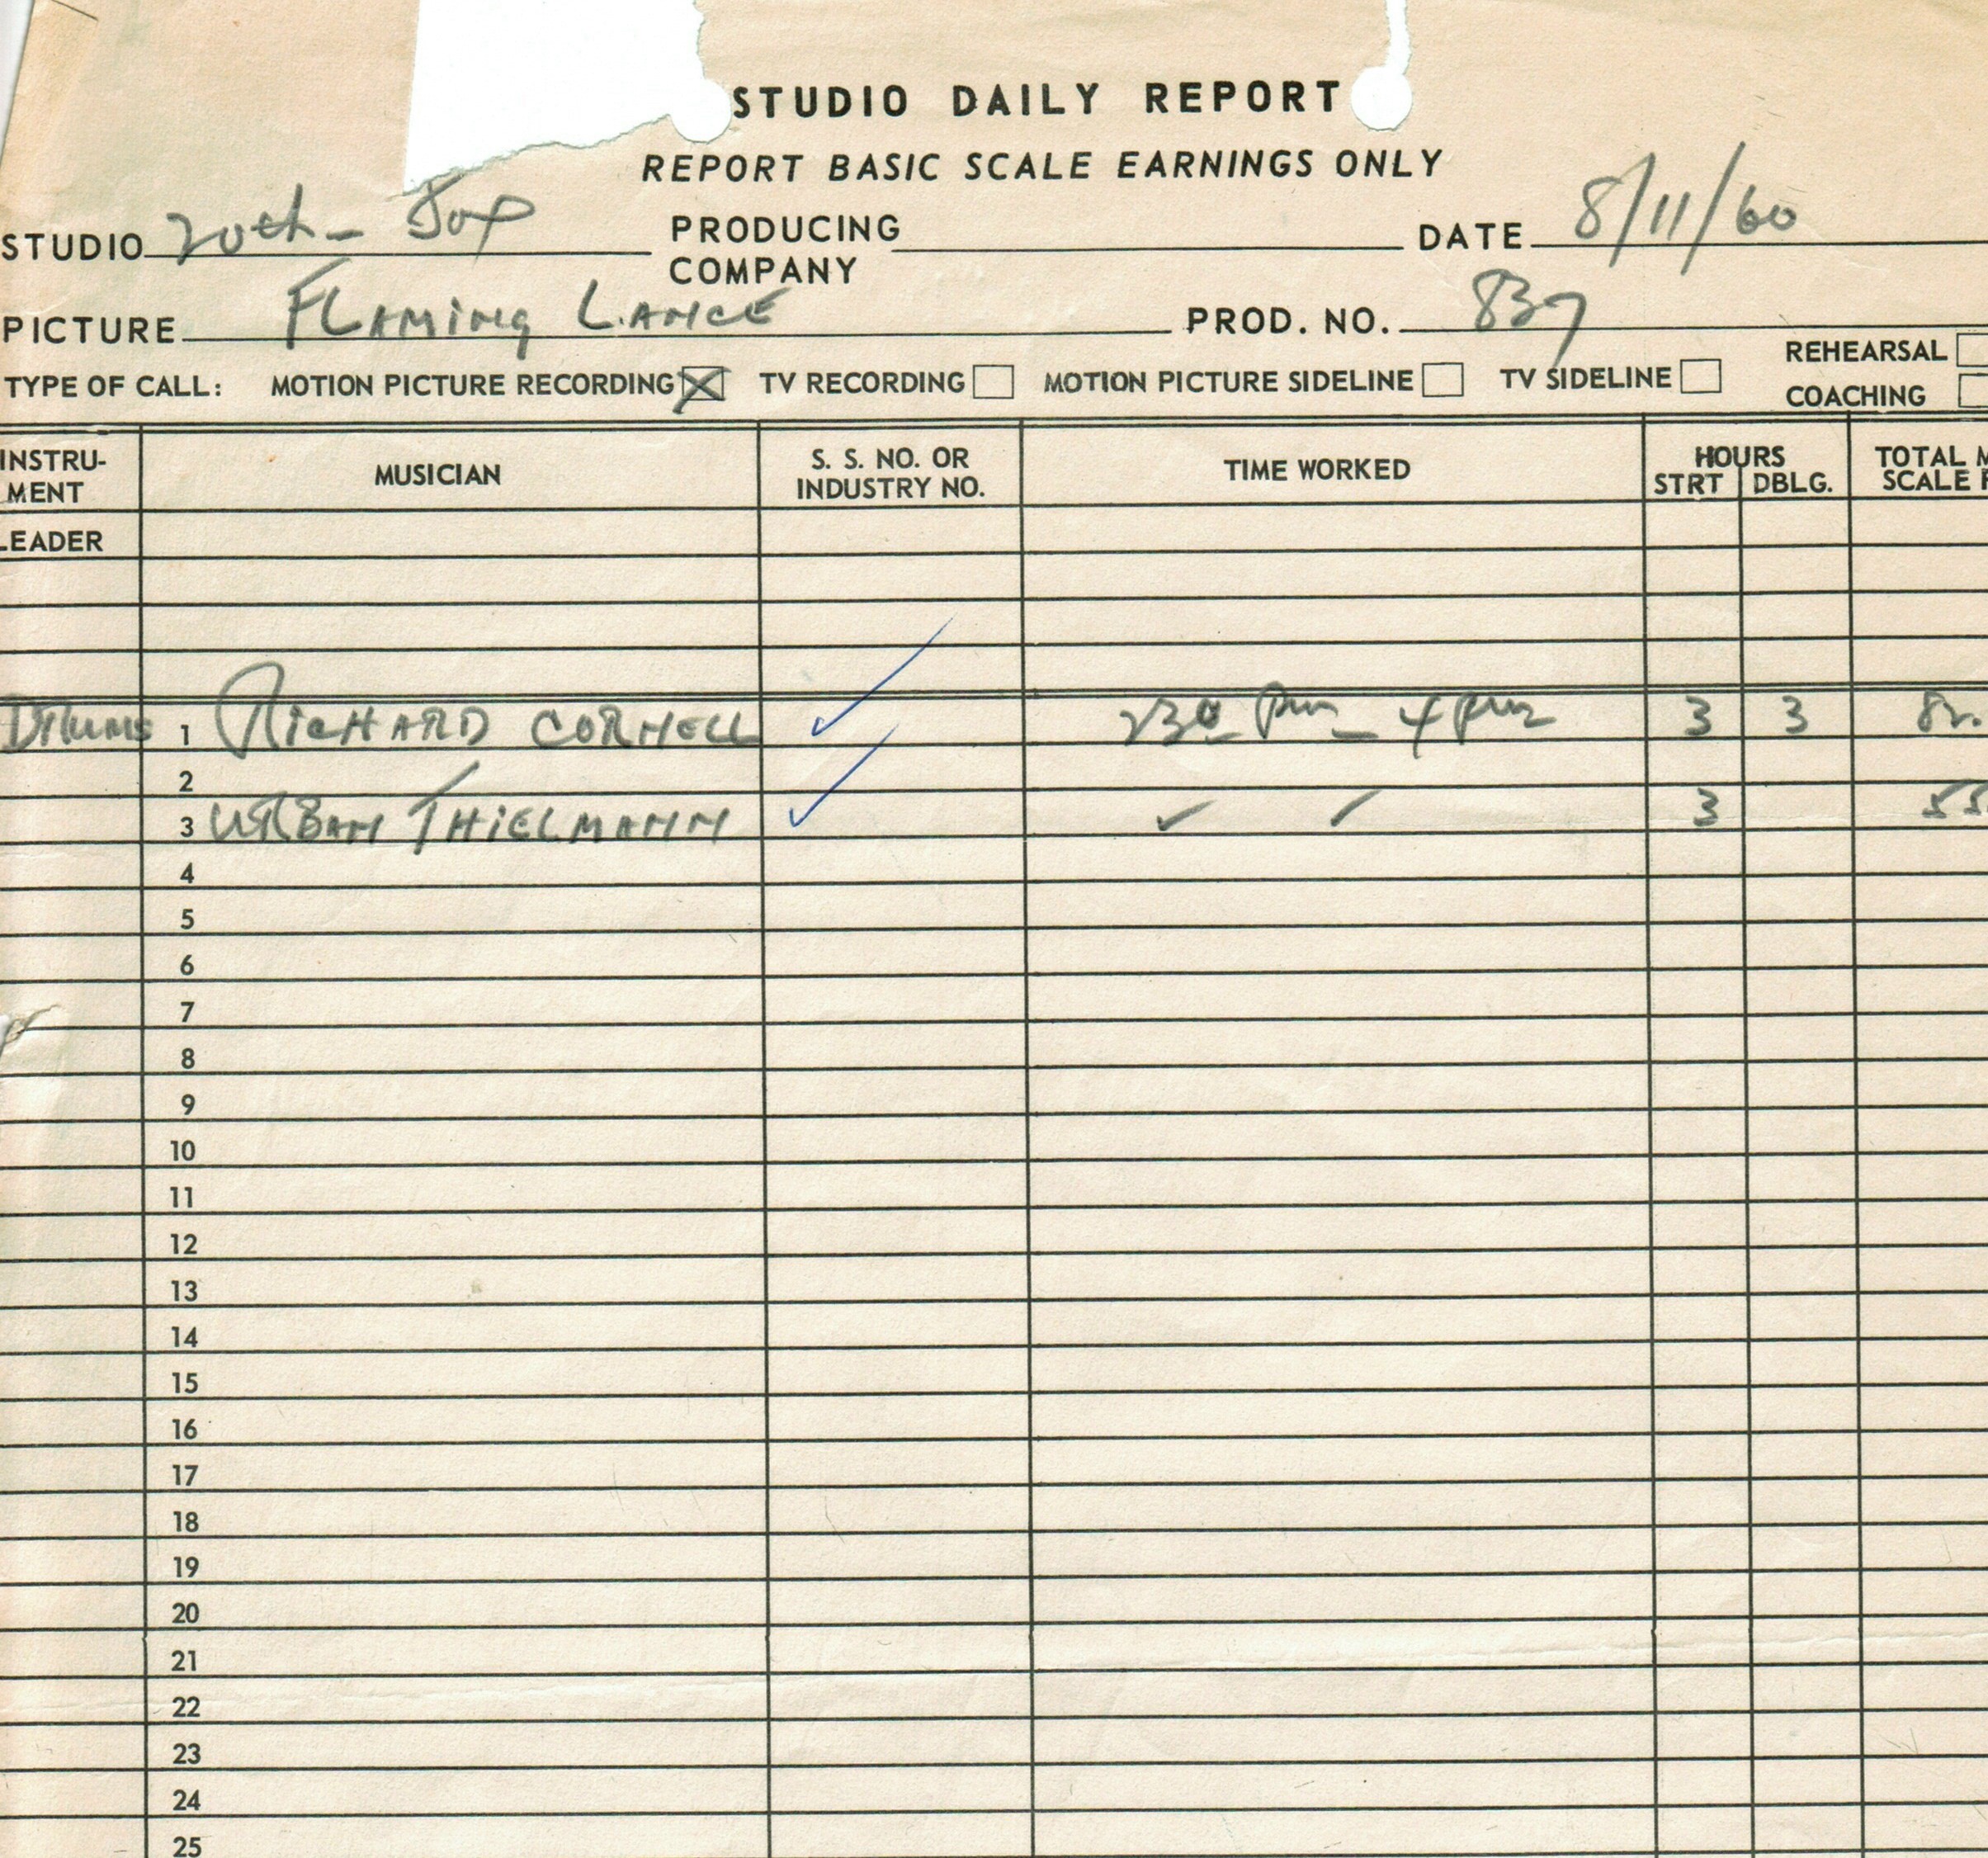 STUDIO DAILY REPORT
REPORT BASIC SCALE EARNINGS ONLY
STUDIO 20th - Fox PRODUCING COMPANY DATE 8/11/60
PICTURE FLAMING LANCE PROD. NO. 837
TYPE OF CALL: MOTION PICTURE RECORDING X TV RECORDING MOTION PICTURE SIDELINE TV SIDELINE REHEARSAL
COACHING
INSTRU-MENT MUSICIAN S. S. NO. OR INDUSTRY NO. TIME WORKED HOURS STRT DBLG. TOTAL SCALE
LEADER
DRUMS 1 RICHARD CORNELL ✓ 230 PM - 4 PM 3 3
2
3 URBAN THIELMANN ✓ ✓ 3 55
4
5
6
7
8
9
10
11
12
13
14
15
16
17
18
19
20
21
22
23
24
25